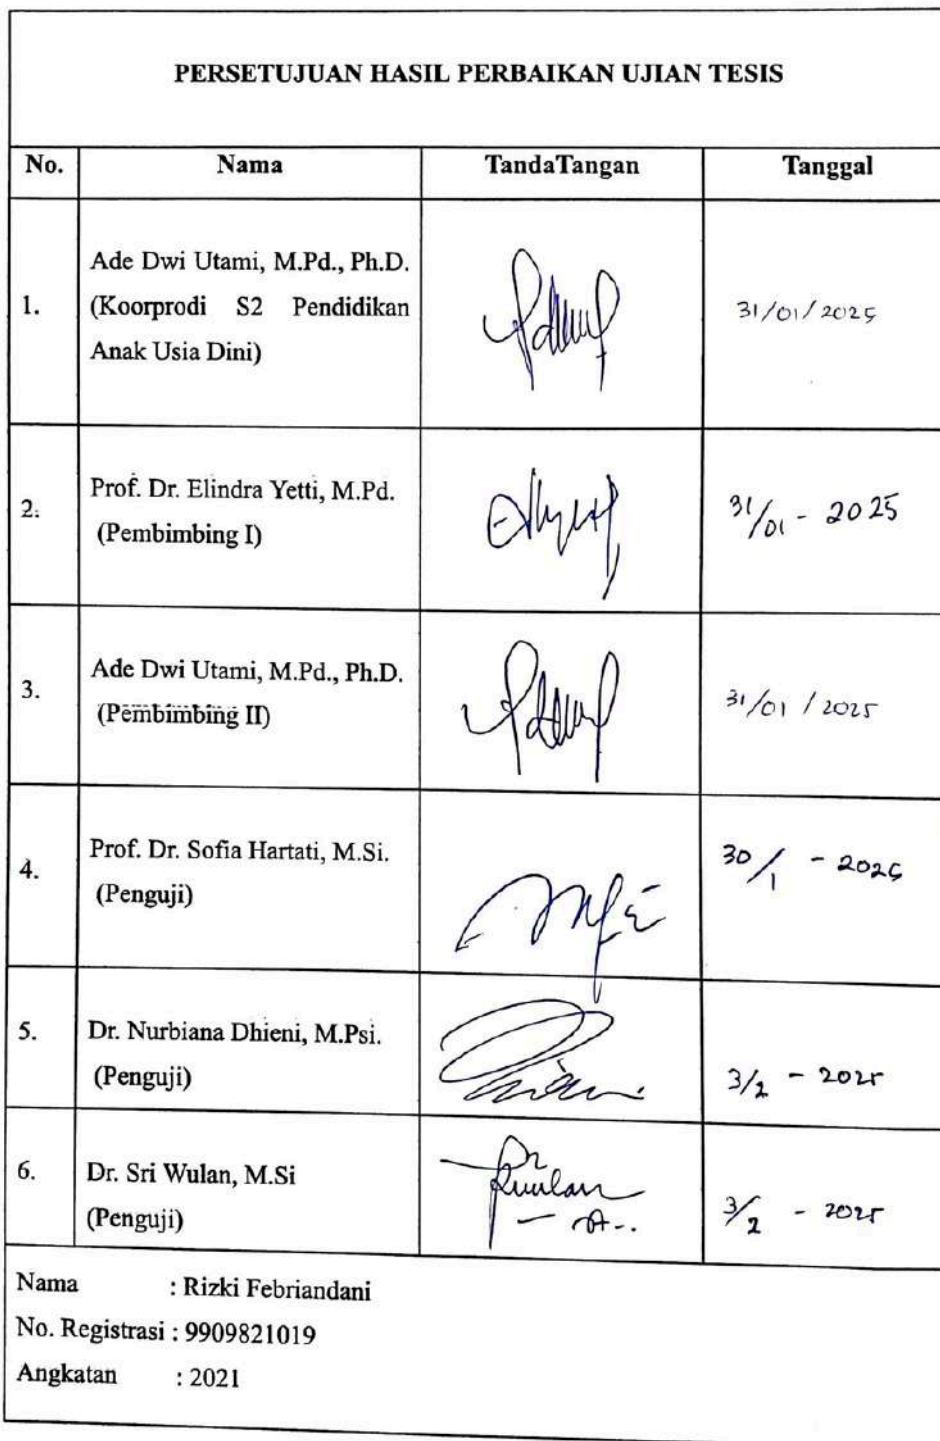 PERSETUJUAN HASIL PERBAIKAN UJIAN TESIS
No. Nama TandaTangan Tanggal
Ade Dwi Utami, M.Pd., Ph.D.
1. (Koorprodi S2 Pendidikan 31/01/2025
Anak Usia Dini)
2. Prof. Dr. Elindra Yetti, M.Pd. 31/01 - 2025
(Pembimbing I)
3. Ade Dwi Utami, M.Pd., Ph.D. 31/01/2025
(Pembimbing II)
4. Prof. Dr. Sofia Hartati, M.Si. 30/1 - 2025
(Penguji)
5. Dr. Nurbiana Dhieni, M.Psi.
(Penguji) 3/2 - 2025
6. Dr. Sri Wulan, M.Si
(Penguji) 3/2 - 2025
Nama : Rizki Febriandani
No. Registrasi : 9909821019
Angkatan : 2021